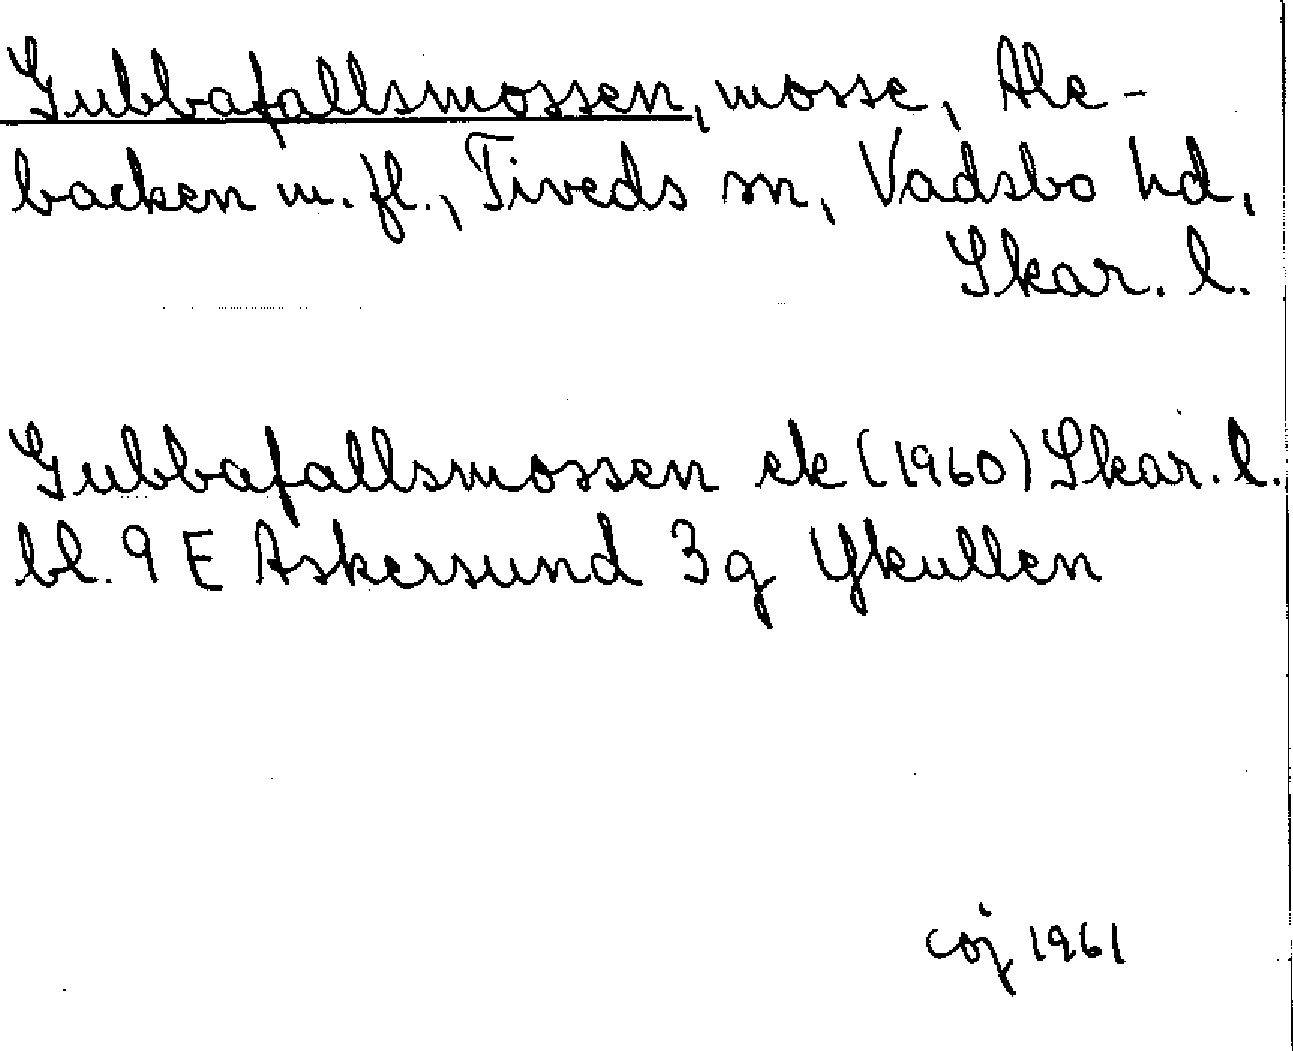 Gubbafallsmossen, mosse, Ale-
backen m. fl., Tiveds sn, Vadsbo hd,
Skar. l.
Gubbafallsmossen ek (1960) Skar. l.
bl. 9 E Askersund 3g Ykullen
coj 1961